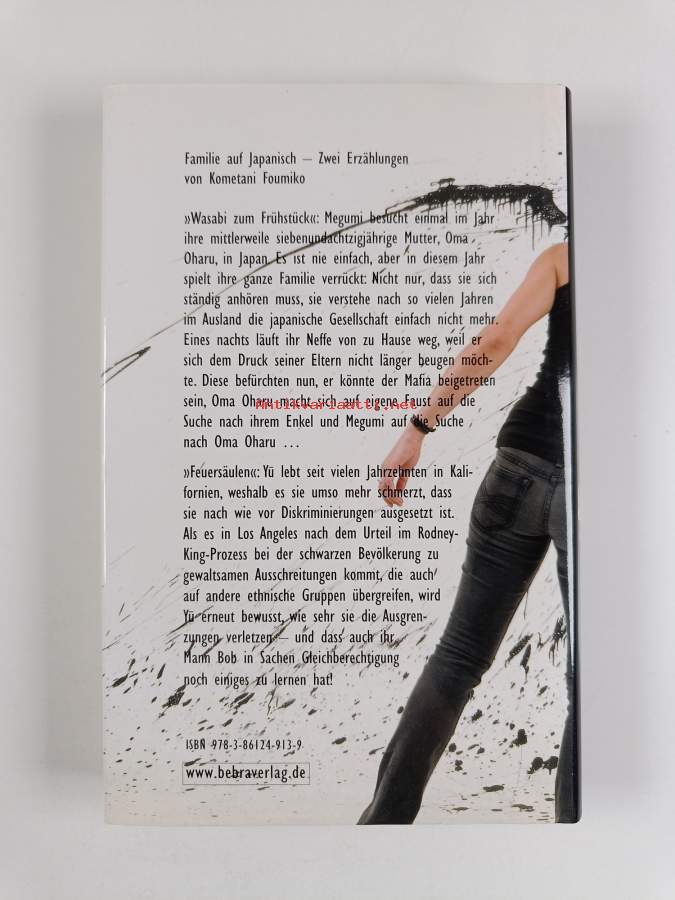 Familie auf Japanisch – Zwei Erzählungen
von Kometani Foumiko
»Wasabi zum Frühstück«: Megumi besucht einmal im Jahr
ihre mittlerweile siebenundachtzigjährige Mutter, Oma
Oharu, in Japan. Es ist nie einfach, aber in diesem Jahr
spielt ihre ganze Familie verrückt: Nicht nur, dass sie sich
ständig anhören muss, sie verstehe nach so vielen Jahren
im Ausland die japanische Gesellschaft einfach nicht mehr.
Eines nachts läuft ihr Neffe von zu Hause weg, weil er
sich dem Druck seiner Eltern nicht länger beugen möch-
te. Diese befürchten nun, er könnte der Mafia beigetreten
sein, Oma Oharu macht sich auf eigene Faust auf die
Antikvariaatti.net
Suche nach ihrem Enkel und Megumi auf die Suche
nach Oma Oharu ...
»Feuersäulen«: Yü lebt seit vielen Jahrzehnten in Kali-
fornien, weshalb es sie umso mehr schmerzt, dass
sie nach wie vor Diskriminierungen ausgesetzt ist.
Als es in Los Angeles nach dem Urteil im Rodney-
King-Prozess bei der schwarzen Bevölkerung zu
gewaltsamen Ausschreitungen kommt, die auch
auf andere ethnische Gruppen übergreifen, wird
Yü erneut bewusst, wie sehr sie die Ausgren-
zungen verletzen – und dass auch ihr
Mann Bob in Sachen Gleichberechtigung
noch einiges zu lernen hat!
ISBN 978-3-86124-913-9
www.bebraverlag.de